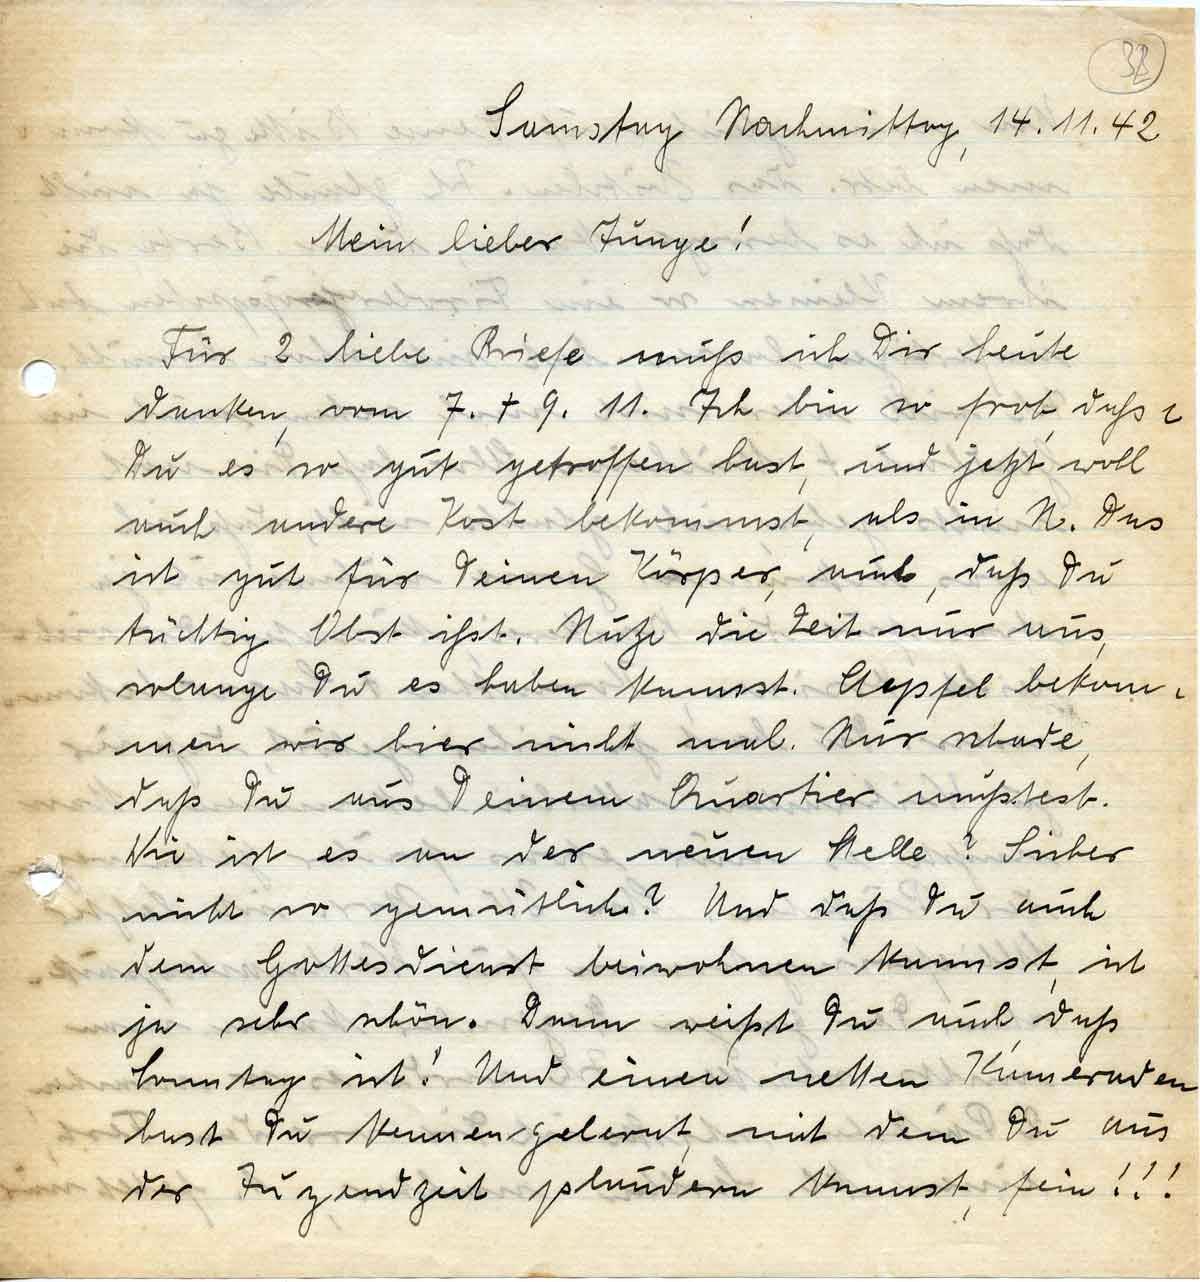 32
Samstag Nachmittag, 14.11.42
Mein lieber Junge!
Für 2 liebe Briefe muß ich Dir heute
danken, vom 7. + 9. 11. Ich bin so froh, daß
Du es so gut getroffen hast, und jetzt woll
auch andere Kost bekommst, als in N. Das
ist gut für Deinen Körper, auch, daß Du
tüchtig Obst ißt. Nutze die Zeit nur aus,
solange Du es haben kannst. Aepfel bekom-
men wir hier nicht mal. Nur schade,
daß Du aus Deinem Quartier mußtest.
Wie ist es an der neuen Stelle? Sicher
nicht so gemütlich? Und daß Du auch
dem Gottesdienst beiwohnen kannst, ist
ja sehr schön. Dann weißt Du auch, daß
Sonntag ist! Und einen netten Kameraden
hast Du kennengelernt, mit dem Du aus
der Jugendzeit plaudern kannst, fein!!!